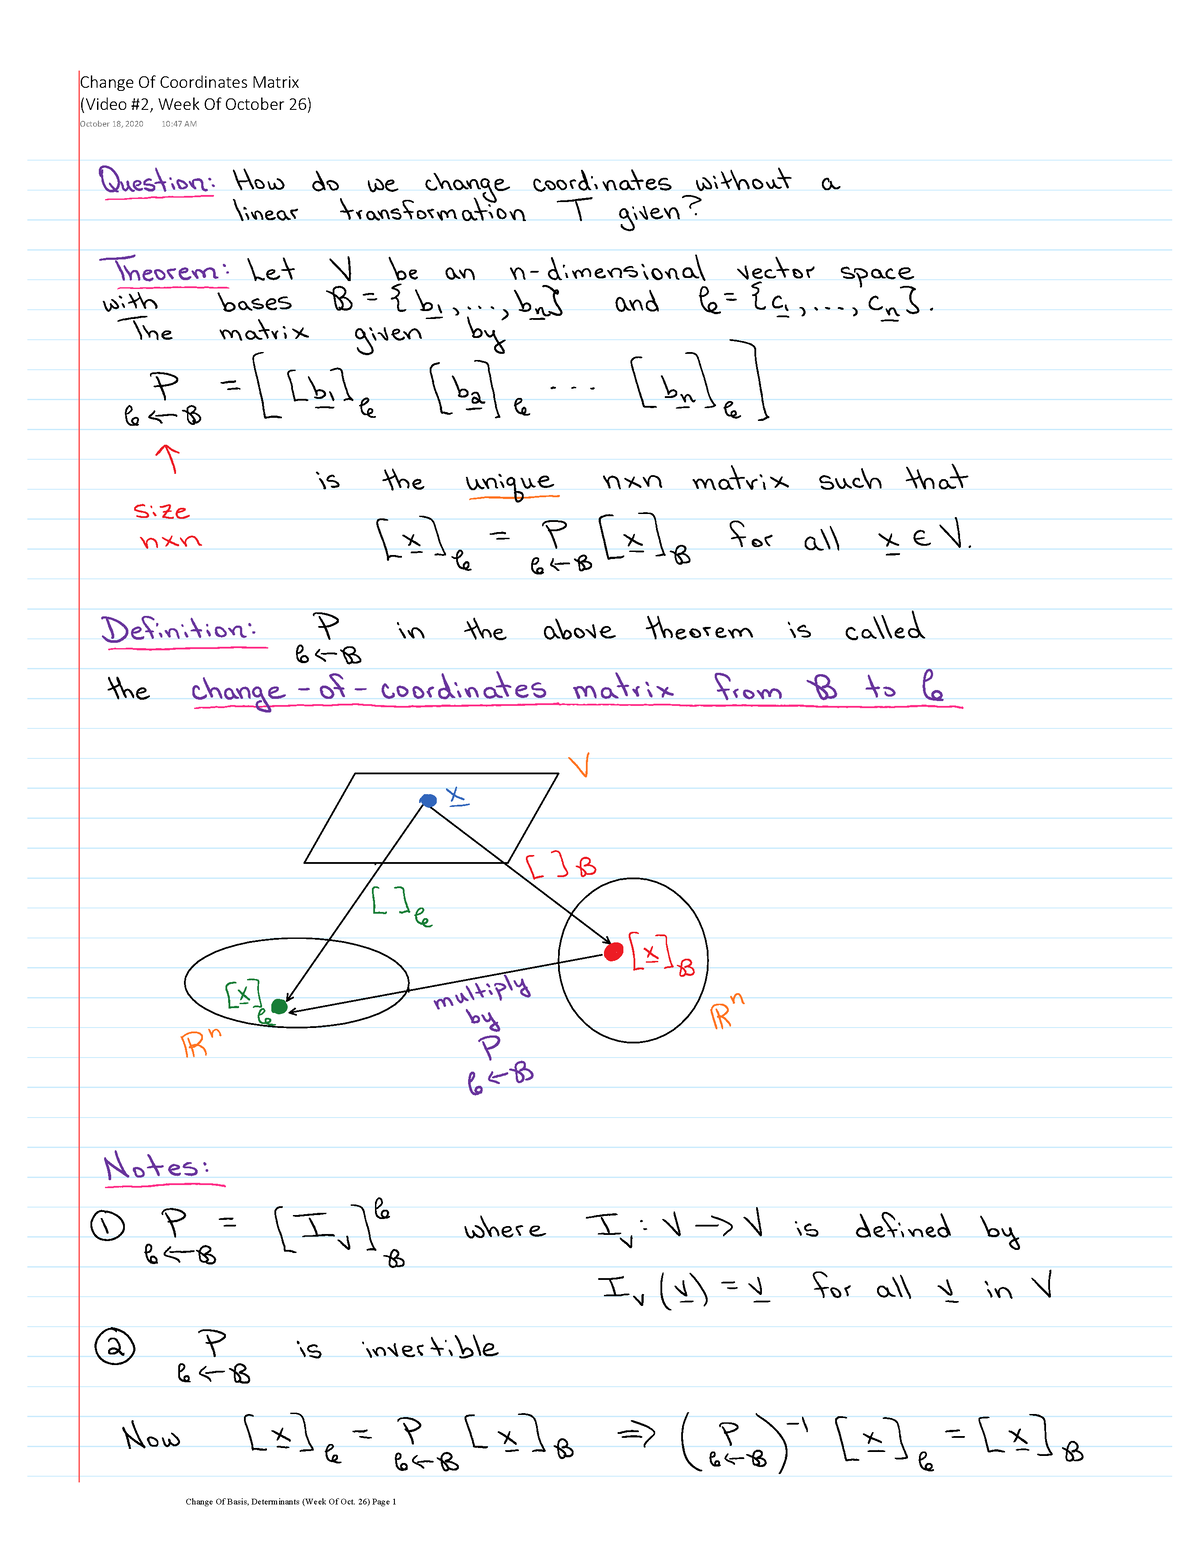 Change Of Coordinates Matrix
(Video #2, Week Of October 26)
October 18, 2020 10:47 AM
Question: How do we change coordinates without a
linear transformation T given?
Theorem: Let V be an n-dimensional vector space
with bases B = {b1, ..., bn} and C = {c1, ..., cn}.
The matrix given by
P = [ [b1]C [b2]C ... [bn]C ]
C←B
↑
is the unique n×n matrix such that
size
n×n
[x]C = P [x]B for all x ∈ V.
C←B
Definition: P in the above theorem is called
C←B
the change-of-coordinates matrix from B to C
V
x
[ ]B
[ ]C
[x]B
[x]C
multiply
by
P
C←B
ℝⁿ
ℝⁿ
Notes:
① P = [I_V]^C_B where I_V : V → V is defined by
C←B
I_V(v) = v for all v in V
② P is invertible
C←B
Now [x]C = P [x]B ⇒ (P)⁻¹ [x]C = [x]B
C←B C←B
Change Of Basis, Determinants (Week Of Oct. 26) Page 1